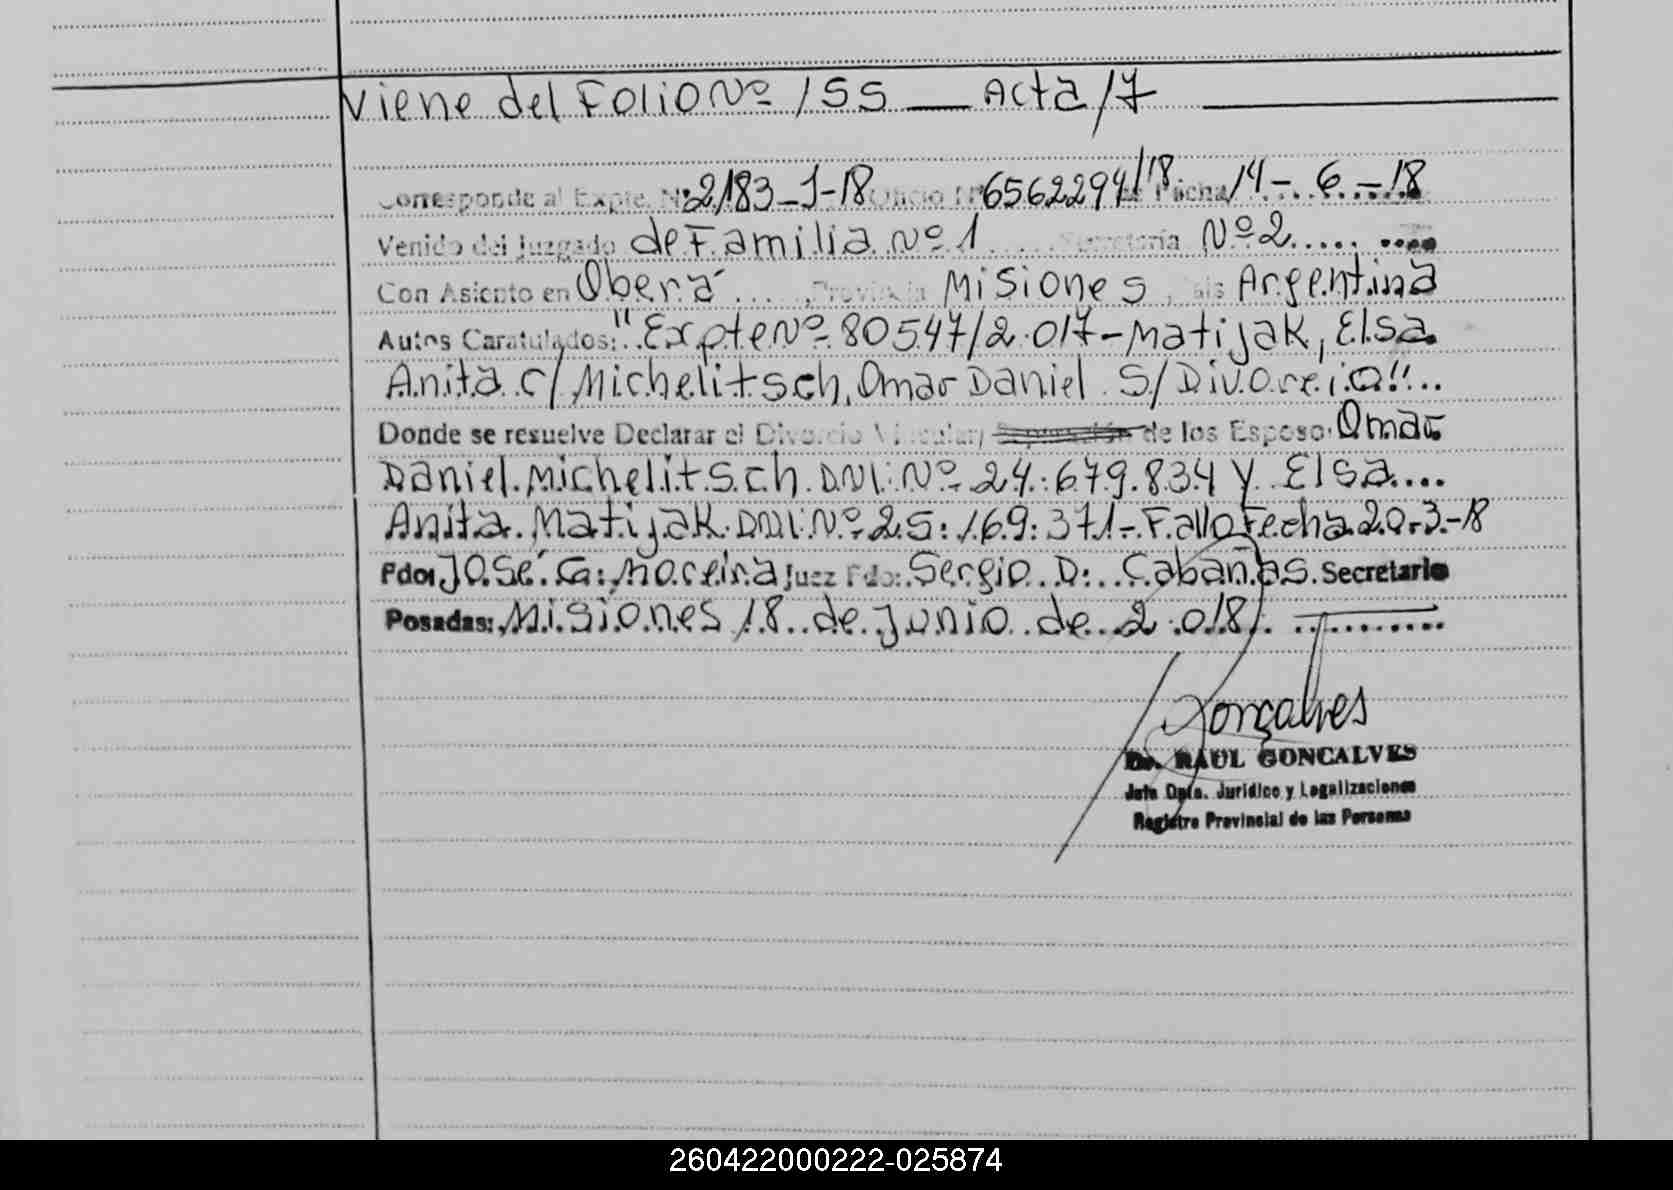 Viene del Folio Nº 155 — Acta 17
Corresponde al Expte. Nº 2183-J-18 Oficio Nº 6562294/18 de Fecha 14-6-18
Venido del Juzgado de Familia Nº 1 Secretaría Nº 2
Con Asiento en Oberá, Provincia Misiones, País Argentina
Autos Caratulados: "Expte Nº 80547/2.017-Matijak, Elsa
Anita c/ Michelitsch, Omar Daniel S/Divorcio"
Donde se resuelve Declarar el Divorcio Vincular, de los Esposo: Omar
Daniel Michelitsch DNI: Nº 24.679.834 y Elsa
Anita Matijak DNI: Nº 25.169.371- Fallo Fecha 20-3-18
Fdo: José G. Moreira Juez Fdo: Sergio D. Cabañas Secretario
Posadas: Misiones 18 de Junio de 2.018
Gonçalves
Dr. RAUL GONCALVES
Jefe Dpto. Jurídico y Legalizaciones
Registro Provincial de las Personas
260422000222-025874